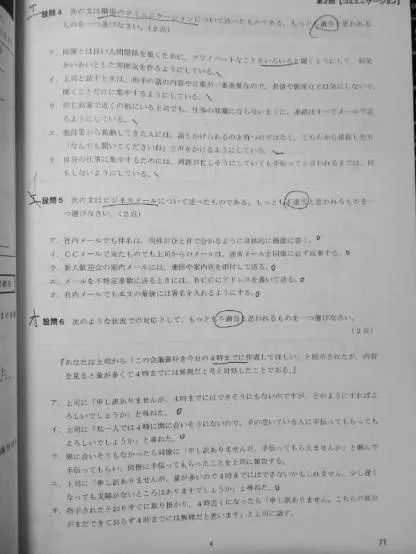 第2回【コミュニケーション】
設問4 次の文は職場のコミュニケーションについて述べたものである。もっとも適当と思われる
ものを一つ選びなさい。(2点)
ア.同僚とは良い人間関係を築くために、プライベートなことをいろいろと聞くようにして、和気
あいあいとした雰囲気を作るようにしている。
イ.上司と話すときは、相手の話の内容や言葉が一番重要なので、表情や態度などは気にしないで、
聞くことだけに集中するようにしている。
ウ.同じ部署で近くの机にいる上司でも、仕事の邪魔にならないように、連絡はすべてメールで送
るようにしている。
エ.他部署から異動してきた人には、話しかけられるのを待つのではなく、こちらから挨拶したり
「なんでも聞いてくださいね」と声をかけるようにしている。
オ.自分の仕事に集中するためには、周囲が忙しそうにしていても手伝ってと言われるまでは、何
もしないようにしている。
設問5 次の文はビジネスメールについて述べたものである。もっとも不適当と思われるものを一
つ選びなさい。(2点)
ア.社内メールでも件名は、用件がひと目で分かるように具体的に簡潔に書く。
イ.CCメールで来たものでも上司からのメールは、通常メールと同様に必ず返事する。
ウ.新入歓迎会の案内メールには、地図や案内状を添付して送る。
エ.メールを不特定多数に送るときには、BCCにアドレスを書いて送る。
オ.社内メールでも本文の最後には署名を入れるようにする。
設問6 次のような状況での対応として、もっとも不適当と思われるものを一つ選びなさい。
(2点)
『あなたは上司から「この会議資料を今日の4時までに作成してほしい」と指示されたが、内容
を見ると量が多くて4時までには無理だと考え対処したことである。』
ア.上司に「申し訳ありませんが、4時までにはできそうにもないのですが、どのようにすればよ
ろしいでしょうか」と尋ねた。
イ.上司に「私一人では4時に間に合いそうにないので、手の空いている人に手伝ってもらっても
よろしいでしょうか」と尋ねた。
ウ.間に合いそうもなかったら同僚に「申し訳ありませんが、手伝ってもらえませんか」と頼んで
手伝ってもらい、同僚に手伝ってもらったことを上司に報告する。
エ.上司に「申し訳ありませんが、量が多いので4時までにはできないかもしれません。少し遅く
なっても支障がないところはありますでしょうか」と尋ねた。
オ.指示されたとおりすぐに取り掛かり、4時近くになったら「申し訳ありません。こちらの部分
がまだできておらず4時までには無理だと思います」と上司に話す。
4
71